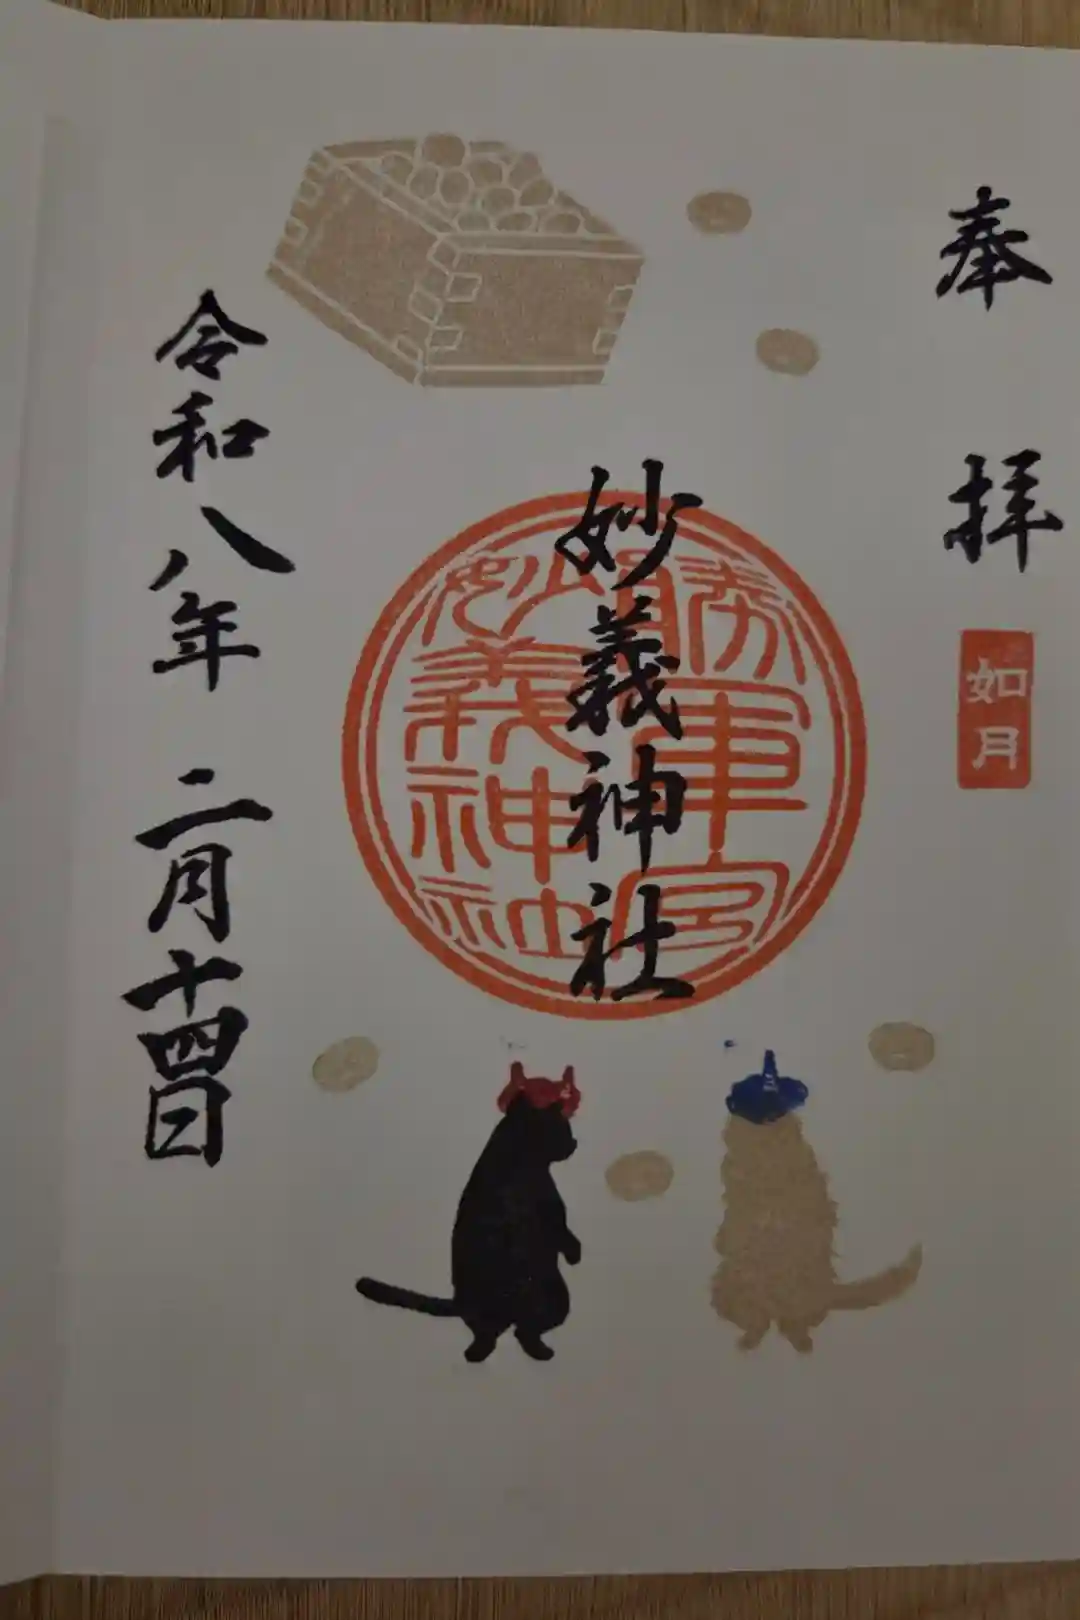 奉拝
如月
妙義神社
勝軍宮
妙義神社
令和八年 二月十四日